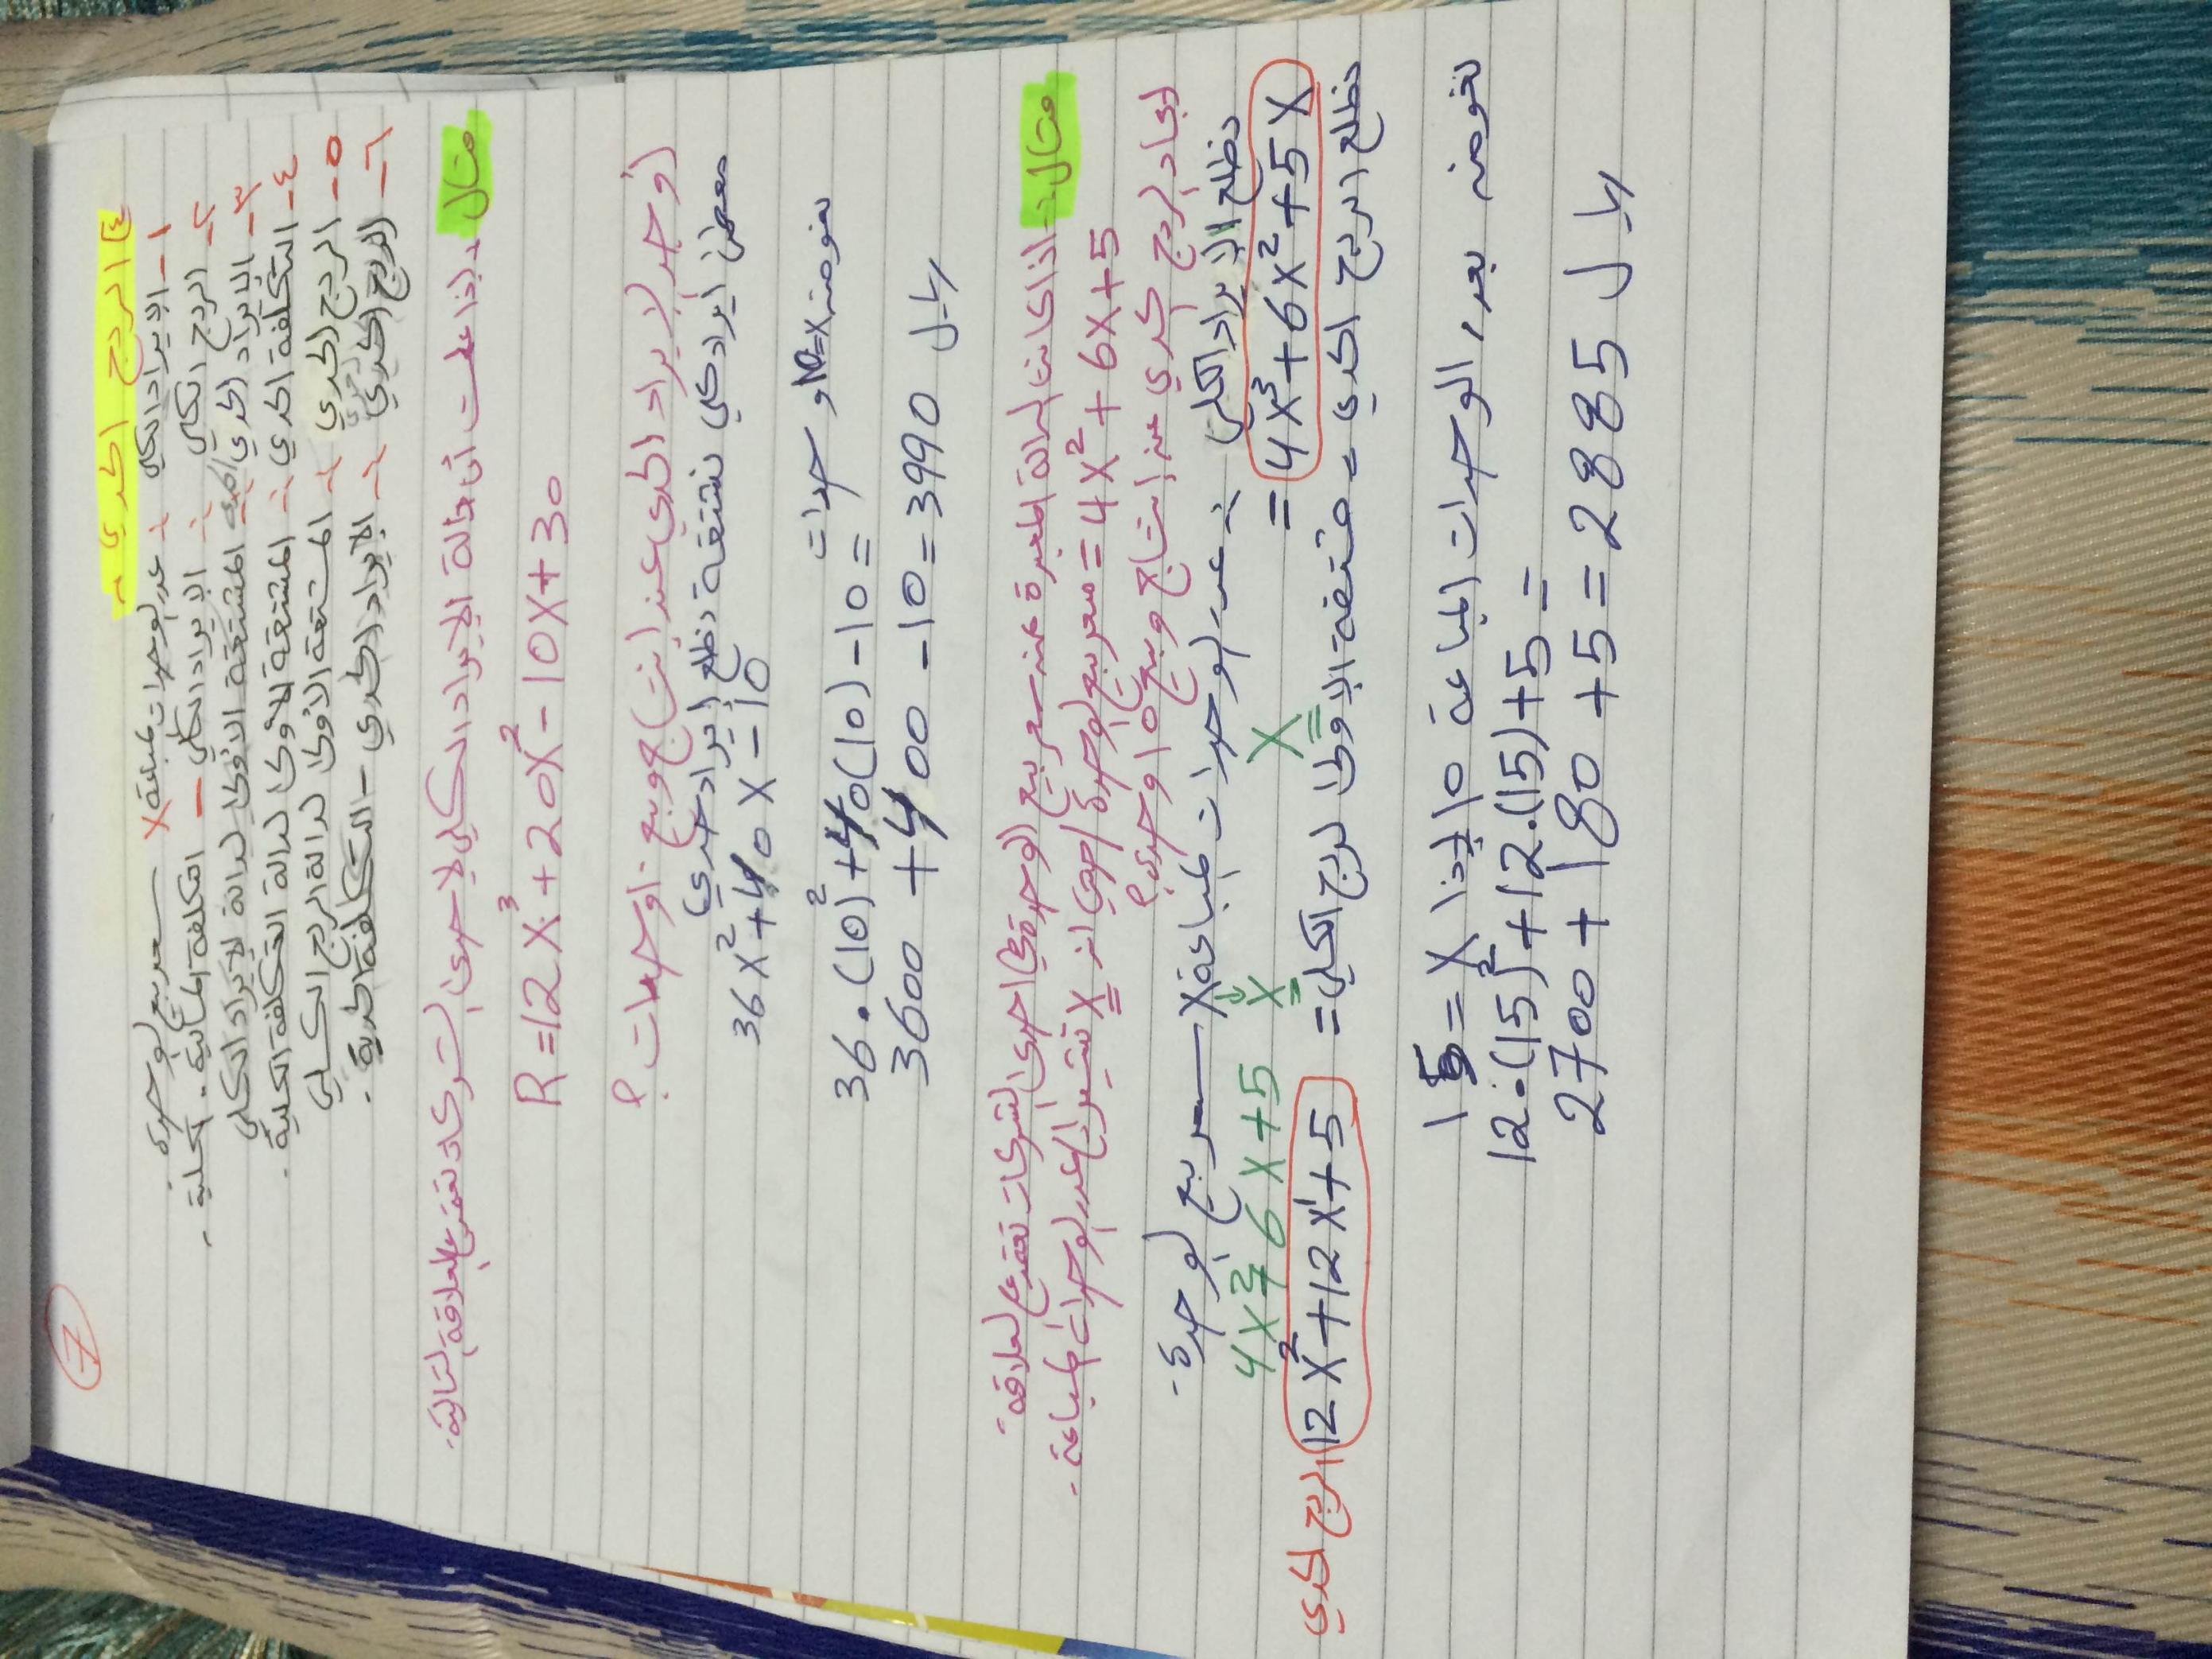 7
٤) الربح الحدي :-
١- الإيراد الكلي :- عدد الوحدات المباعة × سعر بيع الوحدة
٢- الربح الكلي :- الإيراد الكلي - التكلفة الكلية .
٣- الإيراد الحدي :- المشتقة الأولى لدالة الإيراد الكلي
٤- التكلفة الحدي :- المشتقة الأولى لدالة التكلفة الكلية .
٥- الربح الحدي :- المشتقة الأولى لدالة الربح الكلي
٦- الربح الحدي :- الإيراد الحدي - التكلفة الحدية .
مثال :- إذا علمت أن دالة الإيراد الكلي لإحدى الشركات تعطى بالعلاقة التالية :-
R = 12x³ + 20x² - 10x + 30
أوجد الإيراد الحدي عند إنتاج وبيع ١٠ وحدات ؟
معطى إيراد كلي نشتقه نطلع إيراد حدي
36x² + 40x - 10
نعوضه x=10 وحدات
36.(10)² + 40(10) - 10 =
3600 + 400 - 10 = 3990 ريال
مثال :- إذا كانت الدالة المعبرة عن سعر بيع الوحدة في إحدى الشركات تعطى بالعلاقة :-
4x² + 6x + 5 = سعر بيع الوحدة إذ x تشير إلى عدد الوحدات المباعة .
إيجاد الربح الحدي عند إنتاج وبيع ١٥ وحدة ؟
نطلع الإيراد الكلي :- عدد الوحدات المباعة × سعر بيع الوحدة .
x × 4x² + 6x + 5
= 4x³ + 6x² + 5x
نطلع الربح الحدي = مشتقة الأولى للربح الكلي = 12x² + 12x¹ + 5 الربح الحدي
نعوضه بعدد الوحدات المباعة ١٥ إذا x = 15
12.(15)² + 12.(15) + 5 =
2700 + 180 + 5 = 2885 ريال